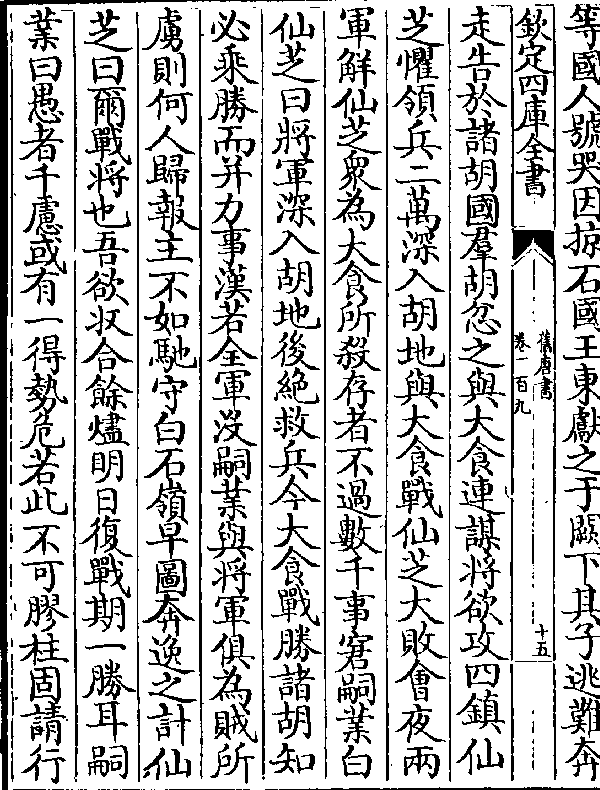 等國人號哭因掠石國王東獻之于闕下其子逃難奔
欽定四庫全書
舊唐書
卷一百九
十五
走告於諸胡國羣胡忿之與大食連謀將欲攻四鎮仙
芝懼領兵二萬深入胡地與大食戰仙芝大敗會夜兩
軍解仙芝衆為大食所殺存者不過數千事窘嗣業白
仙芝曰將軍深入胡地後絶救兵今大食戰勝諸胡知
必乘勝而并力事漢若全軍沒嗣業與將軍俱為賊所
虜則何人歸報主不如馳守白石嶺早圖奔逸之計仙
芝曰爾戰將也吾欲收合餘燼明日復戰期一勝耳嗣
業曰愚者千慮或有一得勢危若此不可膠柱固請行